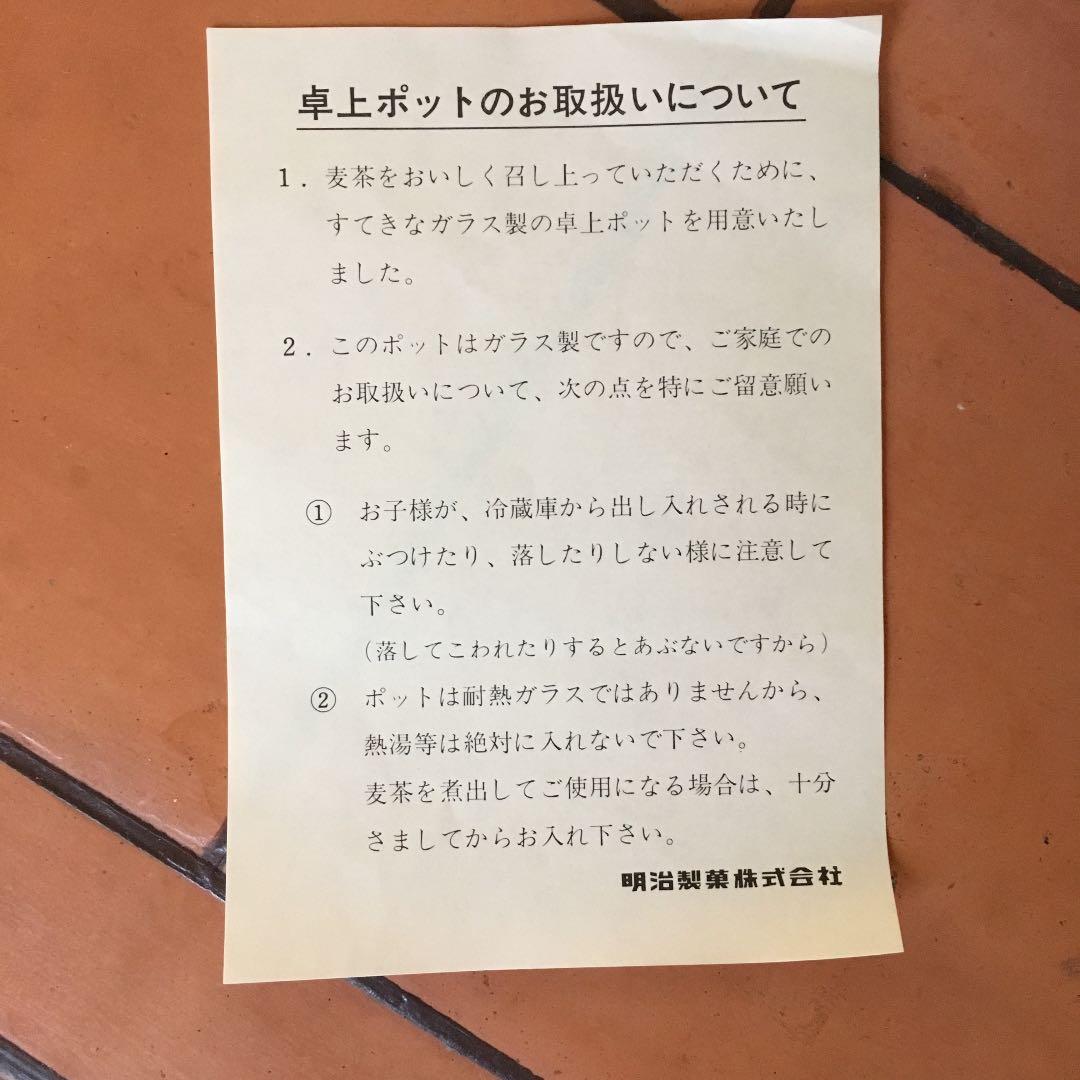 卓上ポットのお取扱いについて
1. 麦茶をおいしく召し上っていただくために、
すてきなガラス製の卓上ポットを用意いたし
ました。
2. このポットはガラス製ですので、ご家庭での
お取扱いについて、次の点を特にご留意願い
ます。
① お子様が、冷蔵庫から出し入れされる時に
ぶつけたり、落したりしない様に注意して
下さい。
(落してこわれたりするとあぶないですから)
② ポットは耐熱ガラスではありませんから、
熱湯等は絶対に入れないで下さい。
麦茶を煮出してご使用になる場合は、十分
さましてからお入れ下さい。
明治製菓株式会社